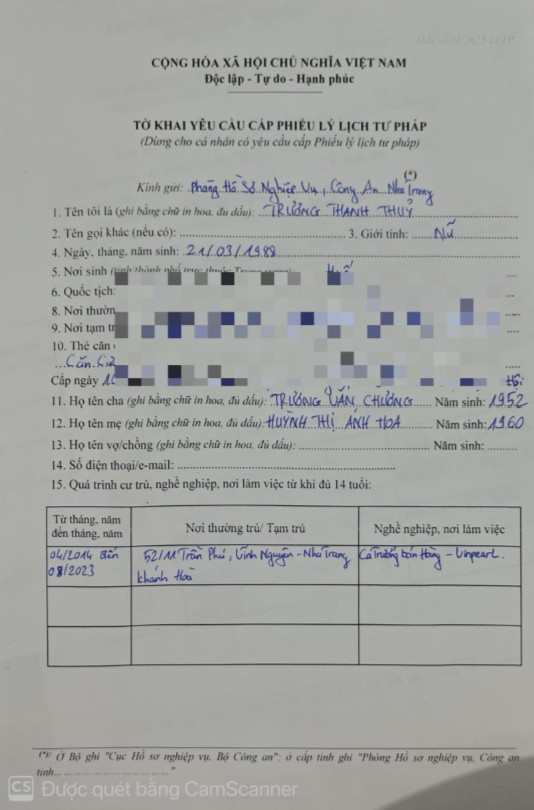 CỘNG HÒA XÃ HỘI CHỦ NGHĨA VIỆT NAM
Độc lập - Tự do - Hạnh phúc
TỜ KHAI YÊU CẦU CẤP PHIẾU LÝ LỊCH TƯ PHÁP
(Dùng cho cá nhân có yêu cầu cấp Phiếu lý lịch tư pháp)
(*)
Kính gửi: Phòng Hồ Sơ Nghiệp Vụ, Công An Nha Trang
1. Tên tôi là (ghi bằng chữ in hoa, đủ dấu): TRƯƠNG THANH THUỶ
2. Tên gọi khác (nếu có): 3. Giới tính: Nữ
4. Ngày, tháng, năm sinh: 21/03/1988
5. Nơi sinh
6. Quốc tịch:
8. Nơi thườn
9. Nơi tạm tr
10. Thẻ căn
Căn
Cấp ngày
11. Họ tên cha (ghi bằng chữ in hoa, đủ dấu): TRƯƠNG VĂN CHƯƠNG Năm sinh: 1952
12. Họ tên mẹ (ghi bằng chữ in hoa, đủ dấu): HUỲNH THỊ ÁNH HOA Năm sinh: 1960
13. Họ tên vợ/chồng (ghi bằng chữ in hoa, đủ dấu): Năm sinh:
14. Số điện thoại/e-mail:
15. Quá trình cư trú, nghề nghiệp, nơi làm việc từ khi đủ 14 tuổi:
Từ tháng, năm đến tháng, năm
Nơi thường trú/ Tạm trú
Nghề nghiệp, nơi làm việc
04/2014 đến
08/2023
52/11 Trần Phú, Vĩnh Nguyên - Nha Trang
Khánh Hoà
Ca Trưởng bán Hàng - Vinpearl.
(*) Ở Bộ ghi "Cục Hồ sơ nghiệp vụ, Bộ Công an"; ở cấp tỉnh ghi "Phòng Hồ sơ nghiệp vụ, Công an
tỉnh "
CS Được quét bằng CamScanner